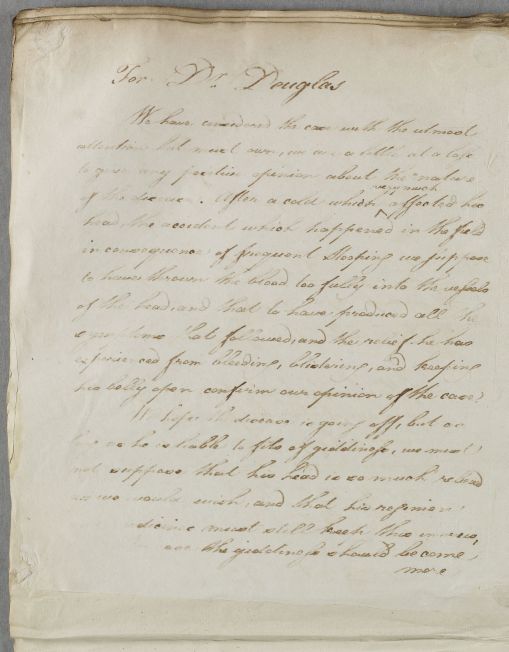 For Dr. Douglas
We have considered the case with the utmost
attention but must own, we are a little at a loss
to give any positive opinion about the nature
very much
of the disease. After a cold which affected his
head, the accident which happened in the field
in consequence of frequent stooping we suppose
to have thrown the blood too fully into the vessels
of the head, and that to have produced all the
symptoms that followed, and the relief he has
experienced from bleeding, blistering, and keeping
his belly open confirm our opinion of the case.
We hope the disease is going off, but as
long as he is liable to fits of giddiness, we must
not suppose that his head is so much relieved
as we would wish, and that his regimen
must still keep this in view,
the giddiness should become
more